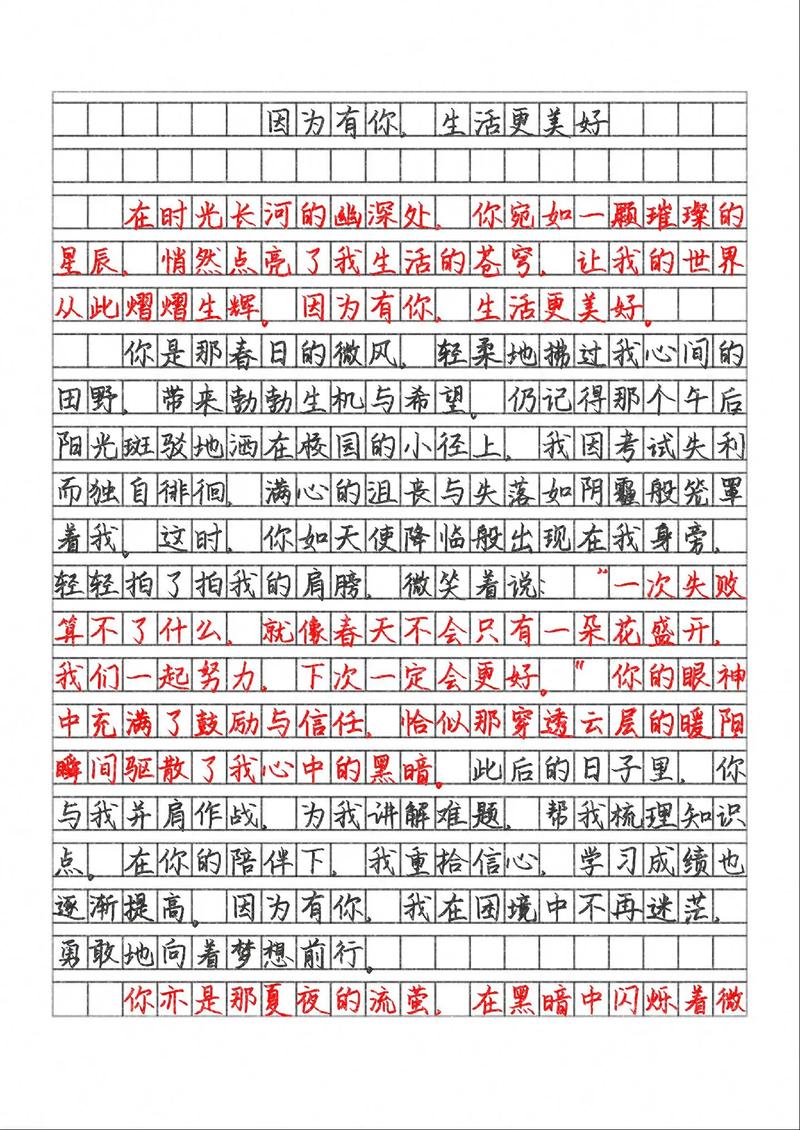 因为有你，生活更美好
在时光长河的幽深处，你宛如一颗璀璨的
星辰，悄然点亮了我生活的苍穹，让我的世界
从此熠熠生辉。因为有你，生活更美好。
你是那春日的微风，轻柔地拂过我心间的
田野，带来勃勃生机与希望。仍记得那个午后
阳光斑驳地洒在校园的小径上，我因考试失利
而独自徘徊，满心的沮丧与失落如阴霾般笼罩
着我。这时，你如天使降临般出现在我身旁，
轻轻拍了拍我的肩膀，微笑着说：“一次失败
算不了什么，就像春天不会只有一朵花盛开，
我们一起努力，下次一定会更好。”你的眼神
中充满了鼓励与信任，恰似那穿透云层的暖阳
瞬间驱散了我心中的黑暗。此后的日子里，你
与我并肩作战，为我讲解难题，帮我梳理知识
点。在你的陪伴下，我重拾信心，学习成绩也
逐渐提高。因为有你，我在困境中不再迷茫，
勇敢地向着梦想前行。
你亦是那夏夜的流萤，在黑暗中闪烁着微